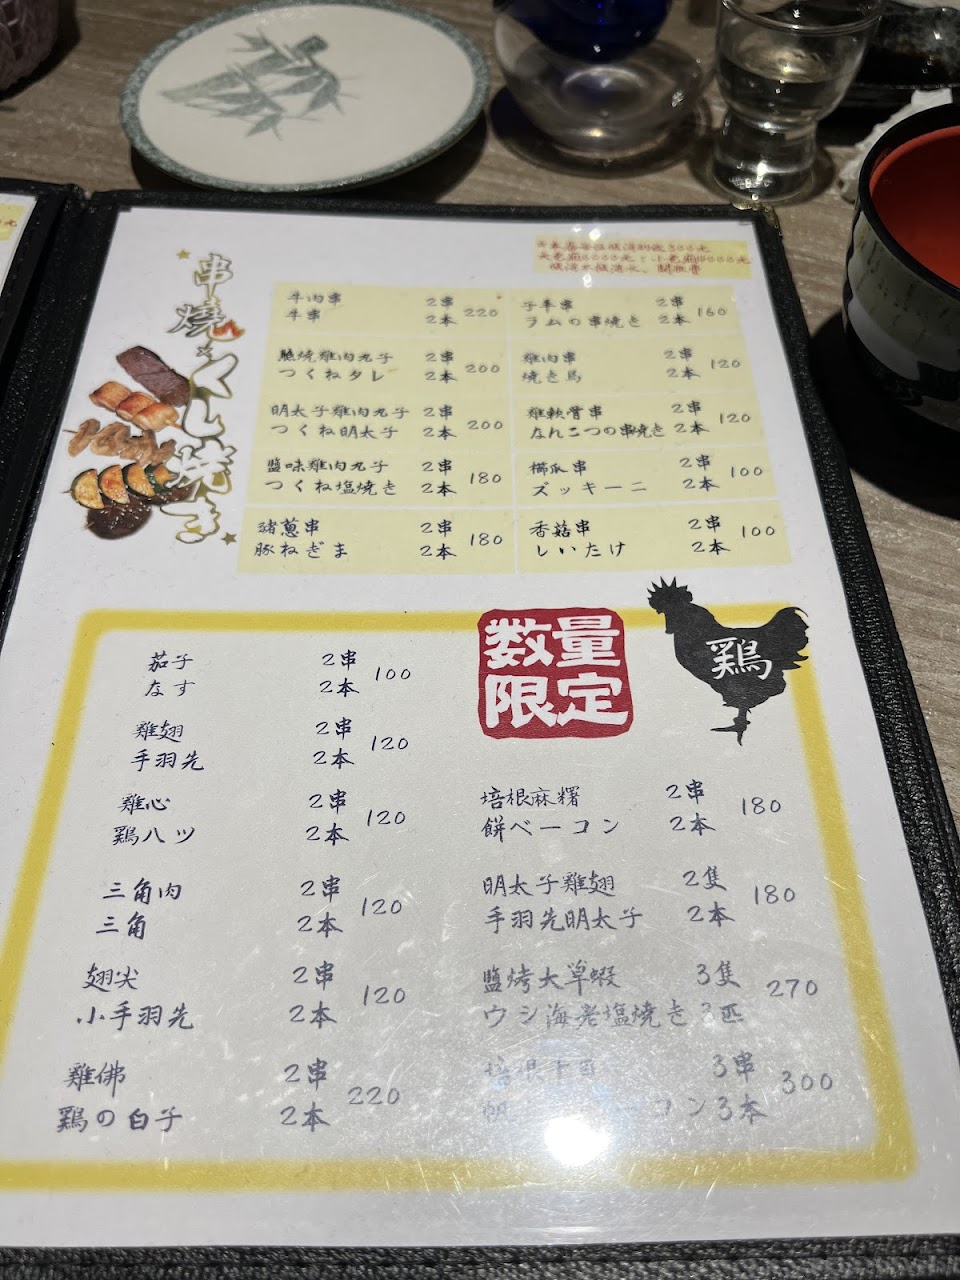 串燒
くし焼き
牛肉串 2串 220
牛串 2本
脆燒雞肉丸子 2串 200
つくねタレ 2本
明太子雞肉丸子 2串 200
つくね明太子 2本
鹽味雞肉丸子 2串 180
つくね塩焼き 2本
豬蔥串 2串 180
豚ねぎま 2本
子羊串 2串 160
ラムの串焼き 2本
雞肉串 2串 120
焼き鳥 2本
雞軟骨串 2串 120
なんこつの串焼き 2本
櫛瓜串 2串 100
ズッキーニ 2本
香菇串 2串 100
しいたけ 2本
数量
限定
鶏
茄子 2串 100
なす 2本
雞翅 2串 120
手羽先 2本
雞心 2串 120
鶏ハツ 2本
三角肉 2串 120
三角 2本
翅尖 2串 120
小手羽先 2本
雞佛 2串 220
鶏の白子 2本
培根麻糬 2串 180
餅ベーコン 2本
明太子雞翅 2隻 180
手羽先明太子 2本
鹽烤大草蝦 3隻 270
ウシ海老塩焼き 3匹
培根 3串 300
コン 3本